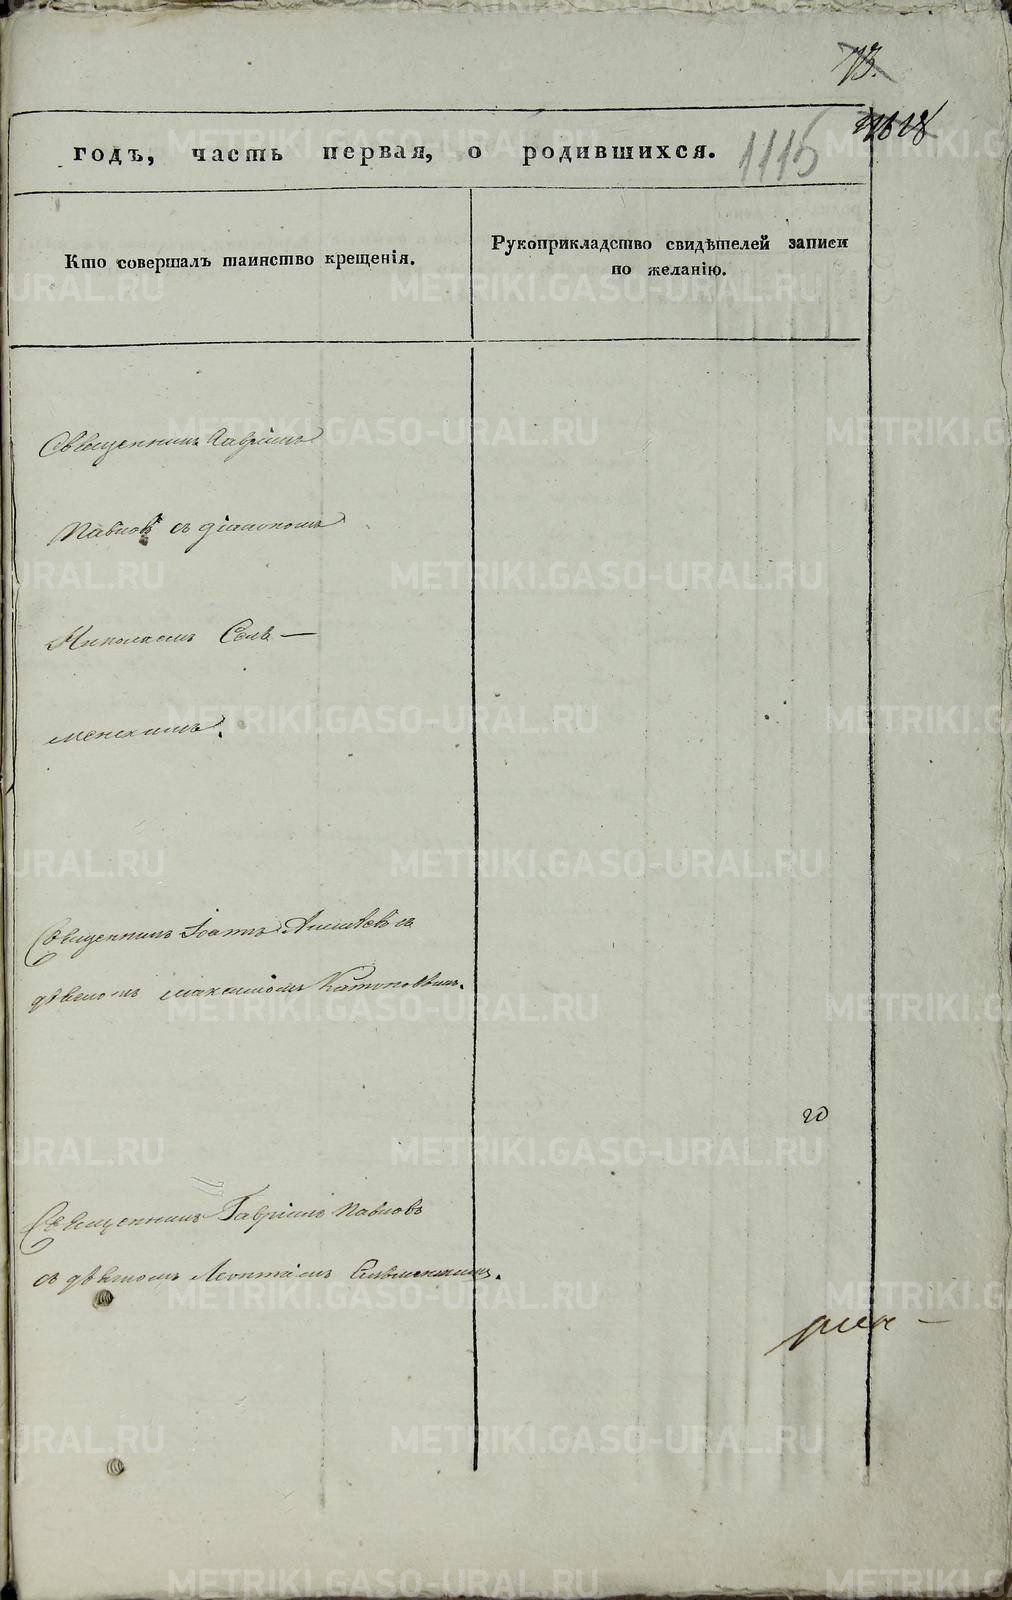 73.
1115
годъ, часть первая, о родившихся.
Кто совершалъ таинство крещенія.
Рукоприкладство свидѣтелей записи
по желанію.
Священникъ Гавріилъ
Павловъ съ діакономъ
Николаемъ Селв—
менскимъ.
Священникъ Іоаннъ
дьячкомъ Максимомъ
20
Священникъ Гавріилъ Павловъ
съ дьячкомъ Леонтіемъ
METRIKI.GASO-URAL.RU